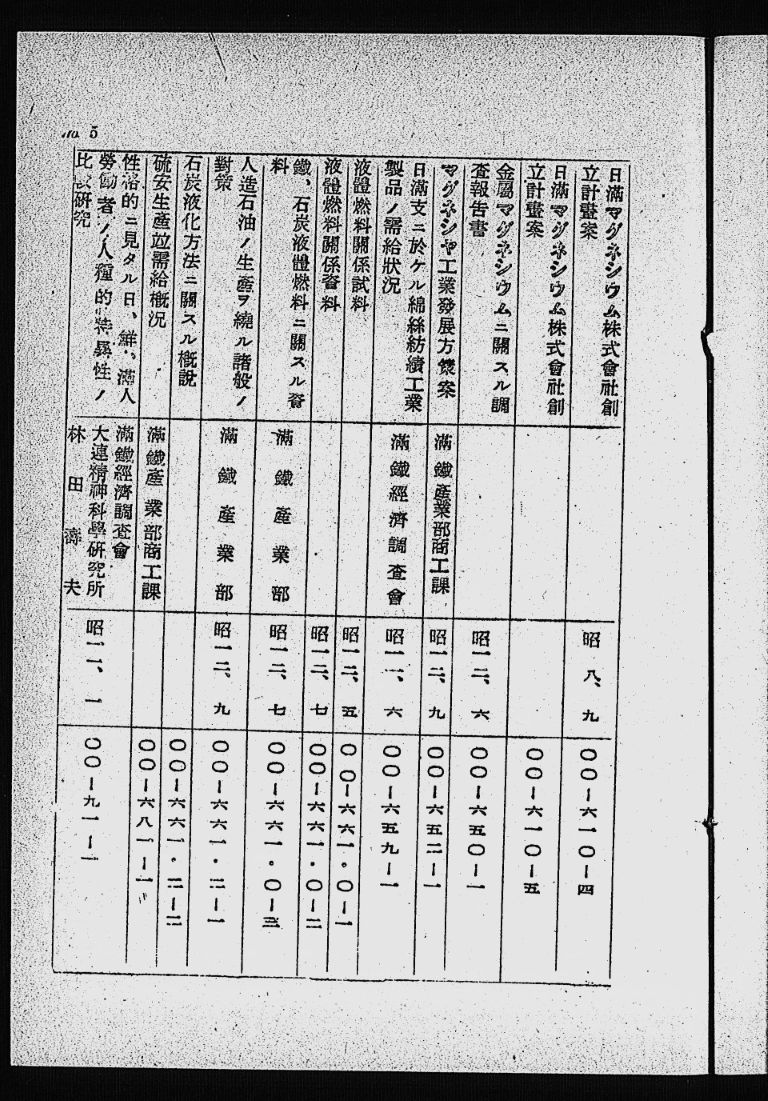 No. 5
日滿マグネシウム株式會社創
立計畫案
昭 八、九
〇〇－六一〇－四
日滿マグネシウム株式會社創
立計畫案
〇〇－六一〇－五
金屬マグネシウムニ關スル調
査報告書
昭一二、六
〇〇－六五〇－一
マグネシヤ工業發展方策案
滿鐵產業部商工課
昭一二、九
〇〇－六五二－一
日滿支ニ於ケル綿絲紡績工業
製品ノ需給狀況
滿鐵經濟調査會
昭一一、六
〇〇－六五九－一
液體燃料關係試料
昭一二、五
〇〇－六六一・〇－一
液體燃料關係資料
昭一二、七
〇〇－六六一・〇－二
鐵、石炭液體燃料ニ關スル資
料
滿鐵產業部
昭一二、七
〇〇－六六一・〇－三
人造石油ノ生產ヲ繞ル諸般ノ
對策
滿鐵產業部
昭一二、九
〇〇－六六一・二－一
石炭液化方法ニ關スル槪說
〇〇－六六一・二－二
硫安生產並需給槪況
滿鐵產業部商工課
〇〇－六八一－一
性格的ニ見タル日、鮮、滿人
勞働者ノ人種的特異性ノ
比較研究
滿鐵經濟調査會
大連精神科學研究所
林田壽夫
昭一一、一
〇〇－九一－一